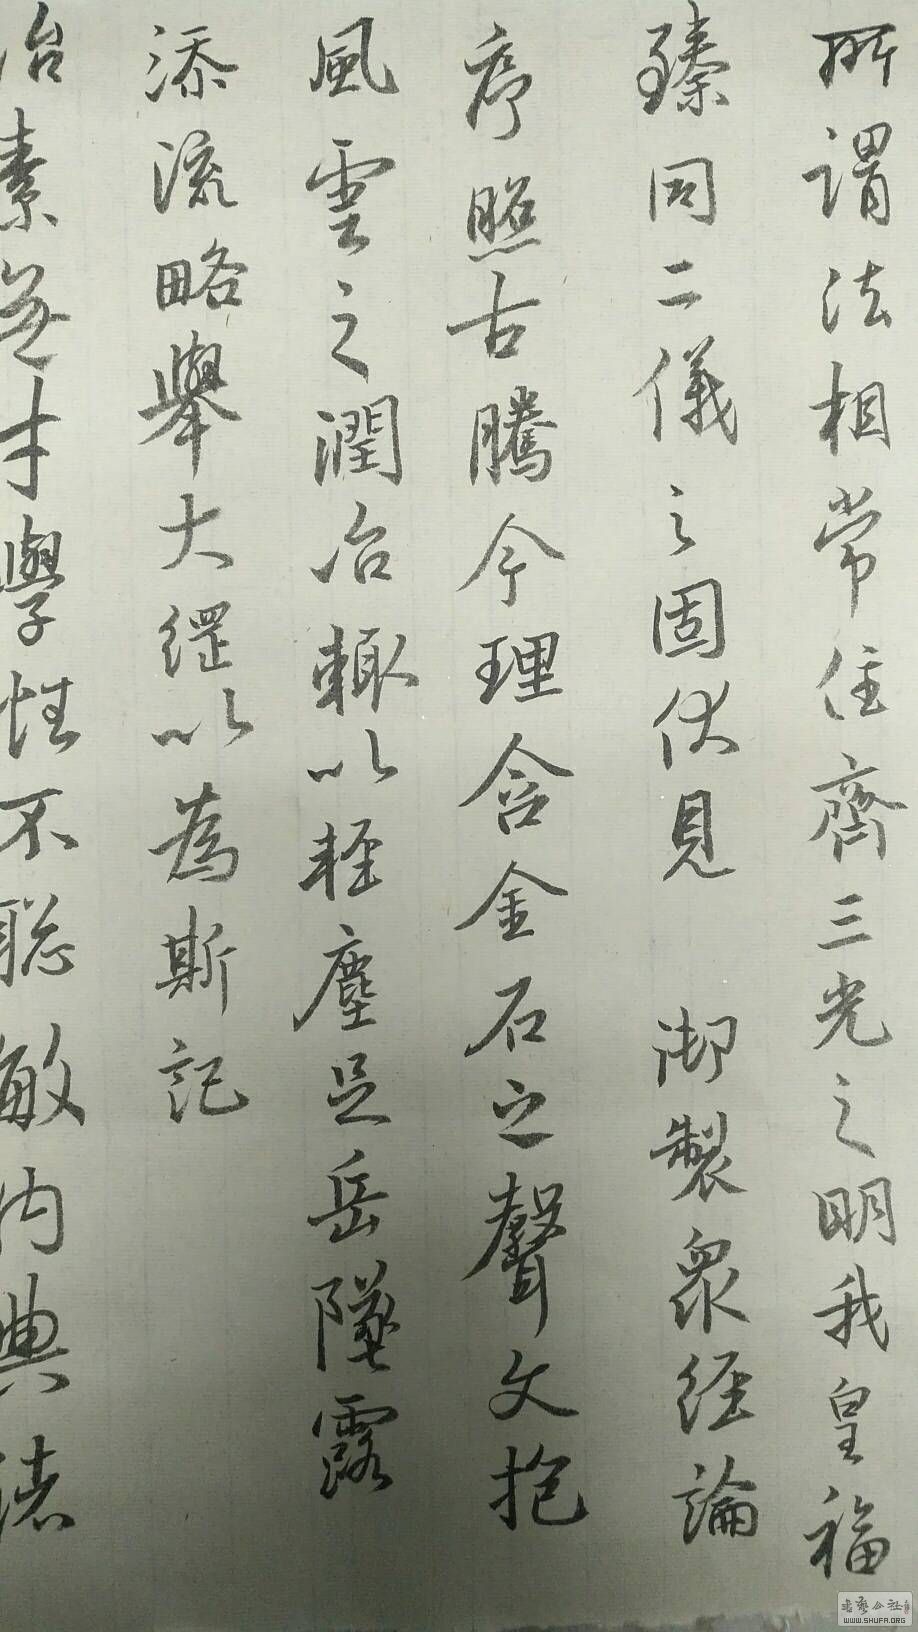 所謂法相常住齊三光之明我皇福
臻同二儀之固伏見 御製眾經論
序照古騰今理含金石之聲文抱
風雲之潤治輙以輕塵足岳墜露
添流略舉大綱以為斯記
治素無才學性不聰敏內典諸
WWW.SHUFA.ORG